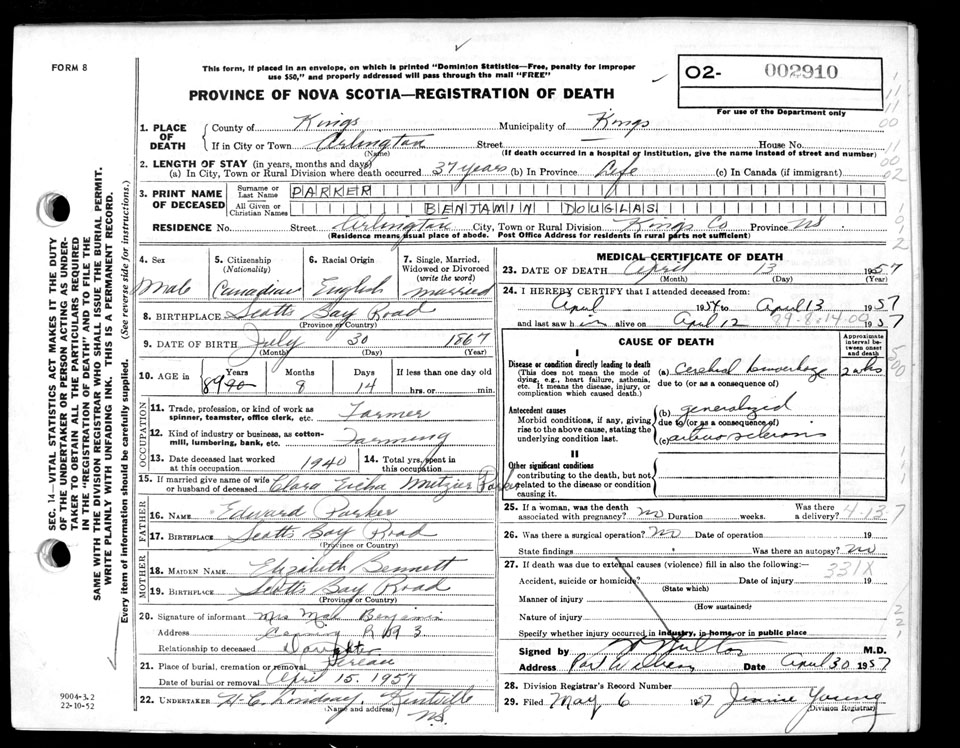 FORM 8
This form, if placed in an envelope, on which is printed "Dominion Statistics—Free, penalty for improper
use $50," and properly addressed will pass through the mail "FREE"
O2- 002910
For use of the Department only
PROVINCE OF NOVA SCOTIA—REGISTRATION OF DEATH
1. PLACE OF DEATH County of Kings Municipality of Kings
If in City or Town Arlington Street — House No.
(Name) (If death occurred in a hospital or institution, give the name instead of street and number)
2. LENGTH OF STAY (in years, months and days)
(a) In City, Town or Rural Division where death occurred 37 years (b) In Province Life (c) In Canada (if immigrant)
3. PRINT NAME OF DECEASED Surname or Last Name PARKER
All Given or Christian Names BENJAMIN DOUGLAS
RESIDENCE No. Street Arlington City, Town or Rural Division Kings Co Province NS
(Residence means usual place of abode. Post Office Address for residents in rural parts not sufficient)
4. Sex Male
5. Citizenship (Nationality) Canadian
6. Racial Origin English
7. Single, Married, Widowed or Divorced (write the word) married
8. BIRTHPLACE Scotts Bay Road
(Province or Country)
9. DATE OF BIRTH July 30 1867
(Month) (Day) (Year)
10. AGE in Years 89 90 Months 8 Days 14 If less than one day old
hrs. or min.
OCCUPATION
11. Trade, profession, or kind of work as spinner, teamster, office clerk, etc. Farmer
12. Kind of industry or business, as cotton-mill, lumbering, bank, etc. Farming
13. Date deceased last worked at this occupation 1940 14. Total yrs. spent in this occupation
15. If married give name of wife or husband of deceased Clara Metzler Parker
FATHER
16. NAME Edward Parker
17. BIRTHPLACE Scotts Bay Road
(Province or Country)
MOTHER
18. MAIDEN NAME Elizabeth Bennett
19. BIRTHPLACE Scotts Bay Road
(Province or Country)
20. Signature of informant Mrs Benjamin
Address Canning R R 3
Relationship to deceased Daughter
21. Place of burial, cremation or removal Pereau
Date of burial or removal April 15, 1957
22. UNDERTAKER Kentville
(Name and address) N.S.
MEDICAL CERTIFICATE OF DEATH
23. DATE OF DEATH April 13 1957
(Month) (Day) (Year)
24. I HEREBY CERTIFY that I attended deceased from:
April 1954 to April 13 1957
and last saw him alive on April 12 1957
CAUSE OF DEATH
Approximate interval between onset and death
I
Disease or condition directly leading to death
(This does not mean the mode of dying, e.g., heart failure, asthenia, etc. It means the disease, injury, or complication which caused death.)
(a) Cerebral hemorrhage 2 wks
due to (or as a consequence of)
Antecedent causes
Morbid conditions, if any, giving rise to the above cause, stating the underlying condition last.
(b) generalized
due to (or as a consequence of)
(c) arteriosclerosis
II
Other significant conditions
contributing to the death, but not related to the disease or condition causing it.
25. If a woman, was the death associated with pregnancy? no Duration weeks. Was there a delivery?
4-13-7
26. Was there a surgical operation? no Date of operation 19
State findings Was there an autopsy? no
27. If death was due to external causes (violence) fill in also the following:—
331X
Accident, suicide or homicide? Date of injury 19
(State which)
Manner of injury
(How sustained)
Nature of injury
Specify whether injury occurred in industry, in home, or in public place
Signed by M.D.
Address Port Williams Date April 30 1957
28. Division Registrar's Record Number
29. Filed May 6 1957 Jennie Young
(Division Registrar)
SEC. 14—VITAL STATISTICS ACT MAKES IT THE DUTY
OF THE UNDERTAKER OR PERSON ACTING AS UNDERTAKER TO OBTAIN ALL THE PARTICULARS REQUIRED
IN THE "REGISTRATION OF DEATH" AND TO FILE THE
SAME WITH THE DIVISION REGISTRAR WHO SHALL ISSUE THE BURIAL PERMIT.
WRITE PLAINLY WITH UNFADING INK. THIS IS A PERMANENT RECORD.
Every item of information should be carefully supplied. (See reverse side for instructions.)
9004-3.2
22-10-52